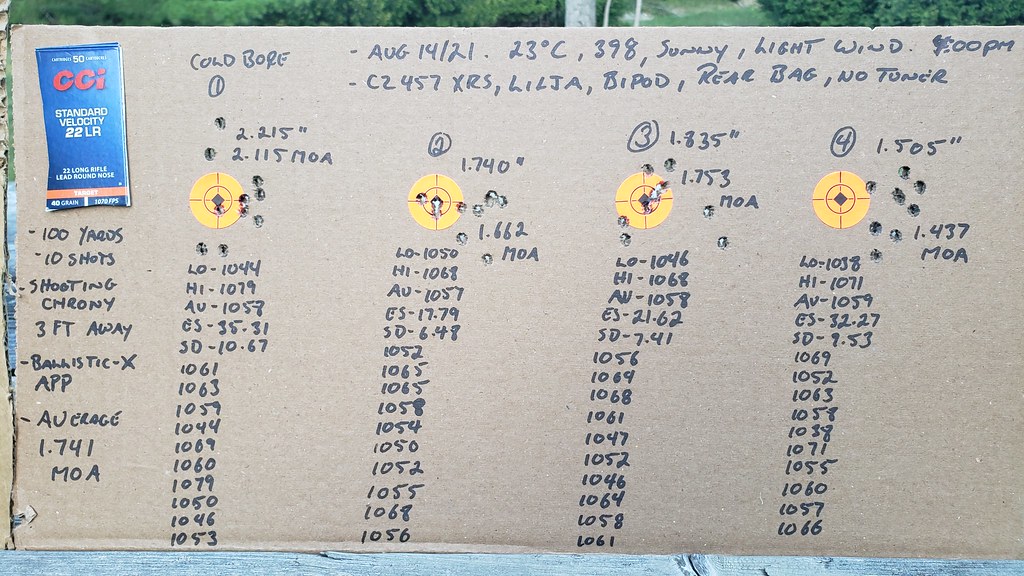 COLD BORE
①
- AUG 14/21. 23°C, 398, SUNNY, LIGHT WIND. 4:00PM
- CZ 457 XRS, LILJA, BIPOD, REAR BAG, NO TUNER
CARTRIDGES 50 CARTOUCHES
CCI
STANDARD
VELOCITY
22 LR
22 LONG RIFLE
LEAD ROUND NOSE
TARGET
40 GRAIN 1070 FPS
- 100 YARDS
- 10 SHOTS
- SHOOTING
CHRONY
3 FT AWAY
- BALLISTIC-X
APP
- AVERAGE
1.741
MOA
2.215"
2.115 MOA
LO-1044
HI-1079
AV-1058
ES-35.31
SD-10.67
1061
1063
1059
1044
1069
1060
1079
1050
1046
1053
②
1.740"
1.662
MOA
LO-1050
HI-1068
AV-1057
ES-17.79
SD-6.48
1052
1065
1065
1058
1054
1050
1052
1055
1068
1056
③
1.835"
1.753
MOA
LO-1046
HI-1068
AV-1058
ES-21.62
SD-7.41
1056
1064
1068
1061
1047
1052
1046
1064
1058
1061
④
1.505"
1.437
MOA
LO-1038
HI-1071
AV-1059
ES-32.27
SD-9.53
1069
1052
1063
1058
1038
1071
1055
1060
1057
1066